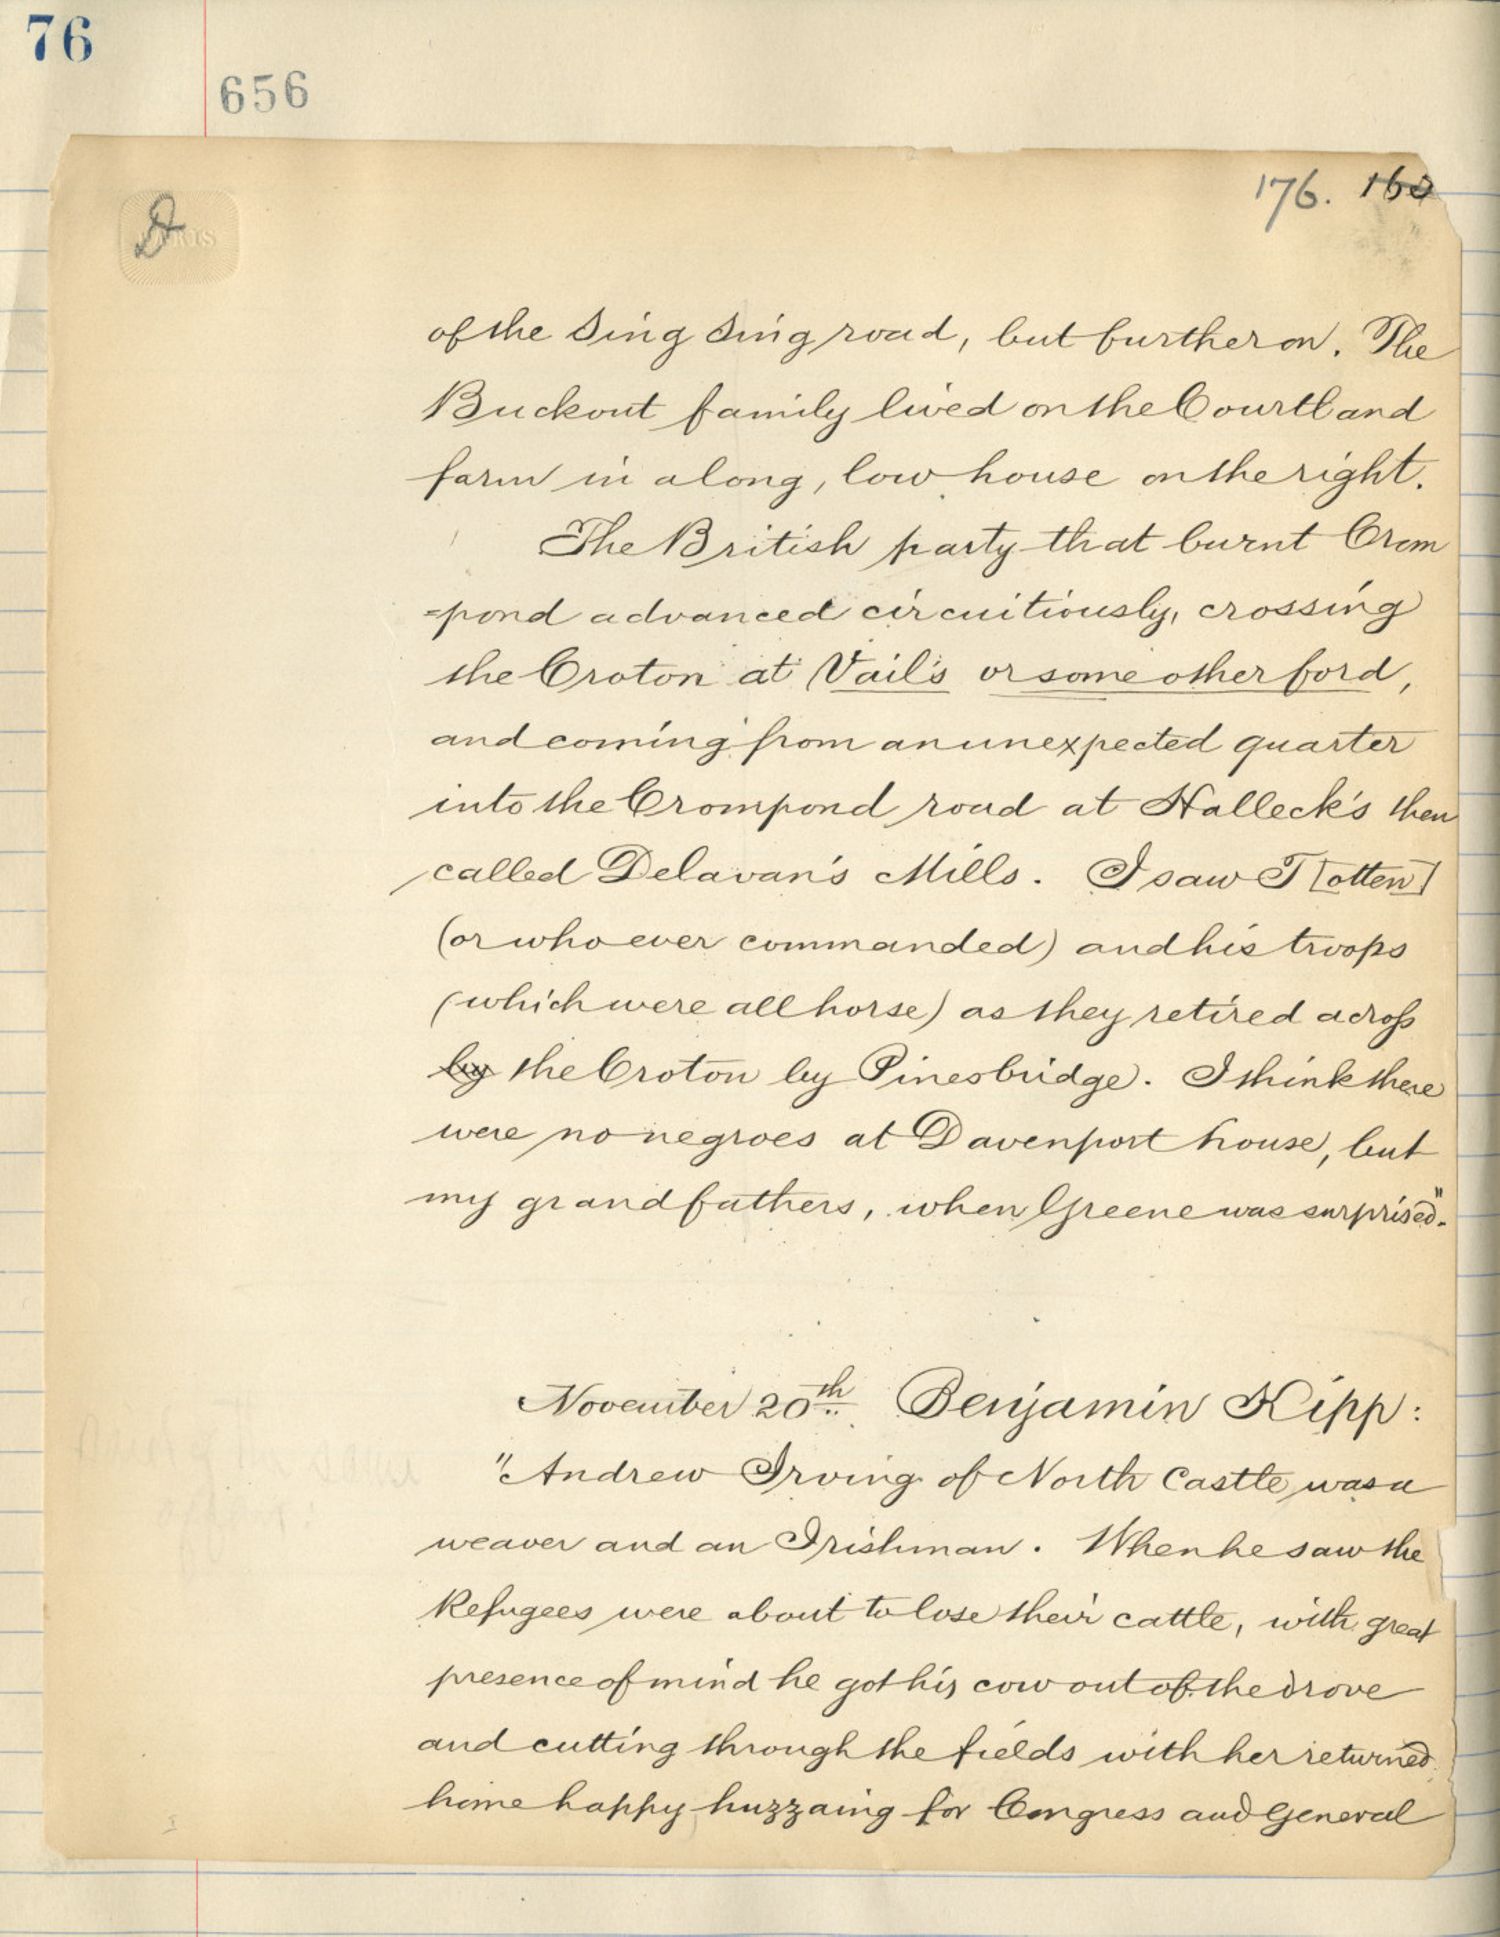 76
656
176. 160
D
of the Sing Sing road, but further on. The
Buckout family lived on the Courtland
farm in a long, low house on the right.
The British party that burnt Crom
=pond advanced circuitiously, crossing
the Croton at Vail's or some other ford,
and coming from an unexpected quarter
into the Crompond road at Halleck's then
called Delavan's Mills. I saw T[otten]
(or who ever commanded) and his troops
(which were all horse) as they retired across
by the Croton by Pinesbridge. I think there
were no negroes at Davenport house, but
my grandfathers, when Greene was surprised."
November 20th Benjamin Kipp:
"Andrew Irving of North Castle was a
weaver and an Irishman. When he saw the
Refugees were about to lose their cattle, with great
presence of mind he got his cow out of the drove
and cutting through the fields with her returned
home happy huzzaing for Congress and General